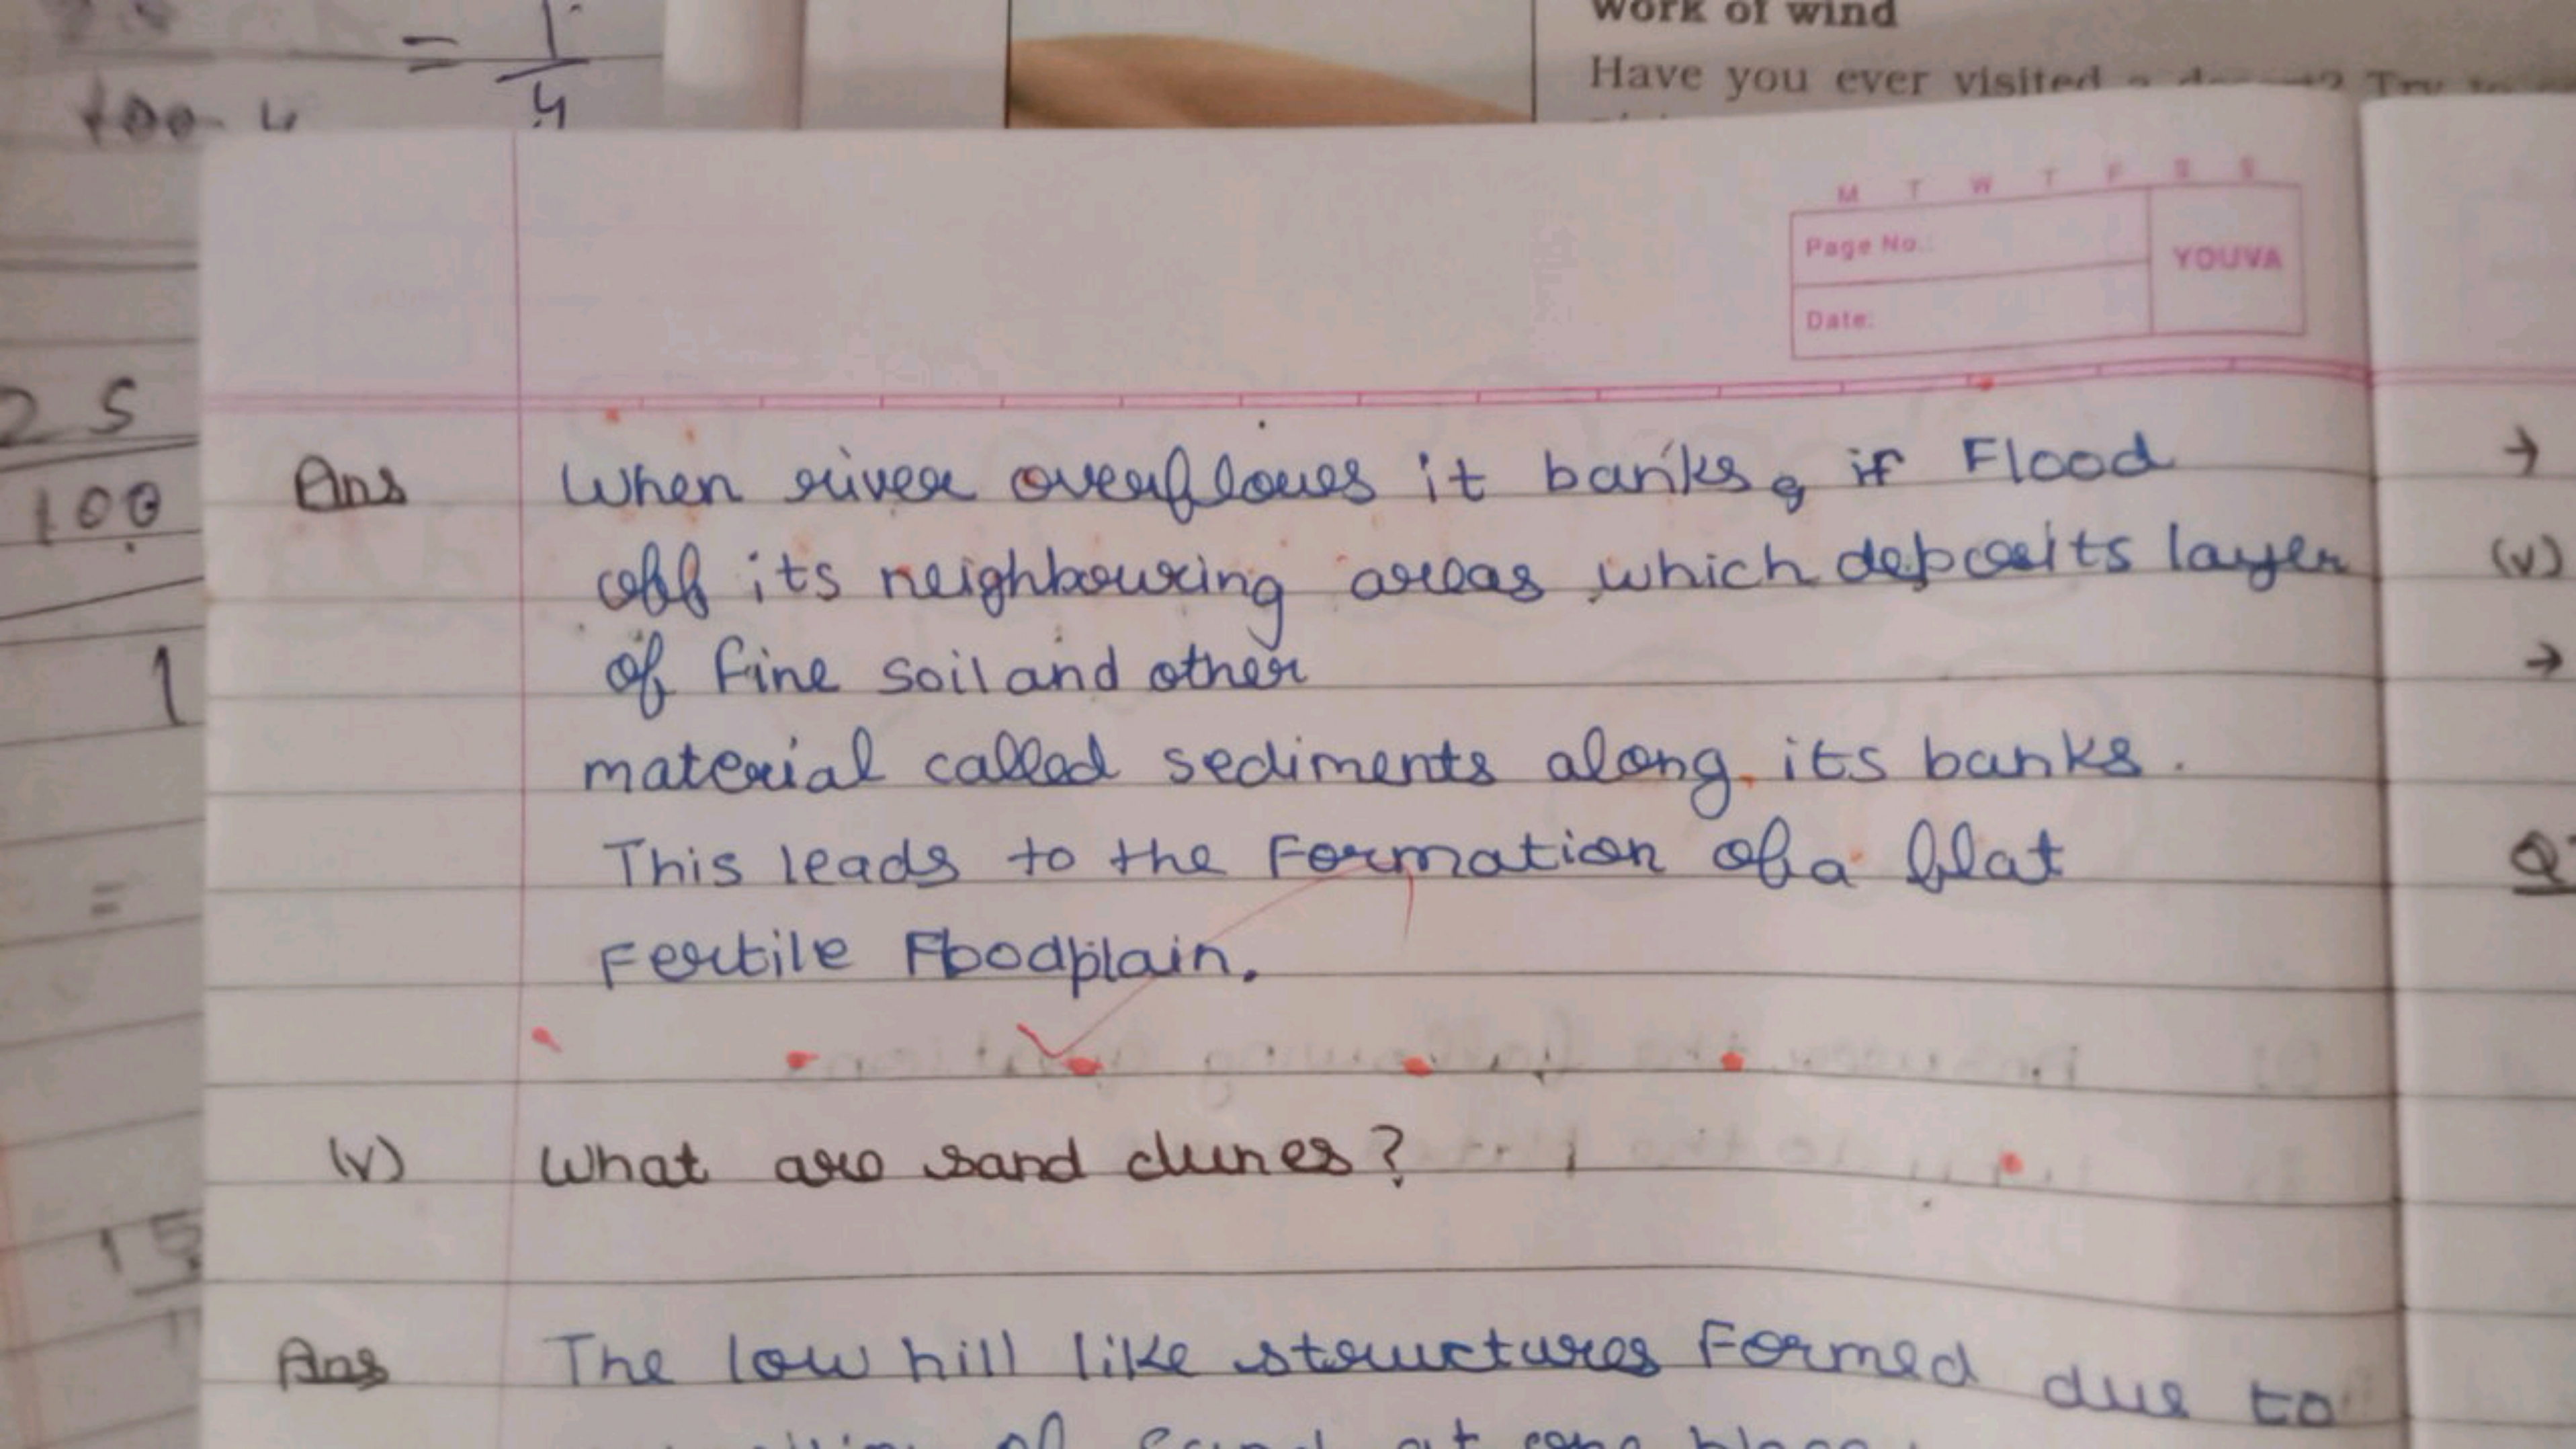 = 1/4
100 4
work of wind
Have you ever visited a desert? Try to
M T W T F S S
Page No.:
YOUVA
Date:
25
100
1
=
15
Ans When river overflowes it banks, if Flood
off its neighbouring areas which deposits layer
of fine soil and other
material called sediments along its banks.
This leads to the Formation of a flat
Fertile Floodplain.
(v) What are sand dunes?
Ans The low hill like structures Formed due to
of Sand at
→
(v)
→
Q